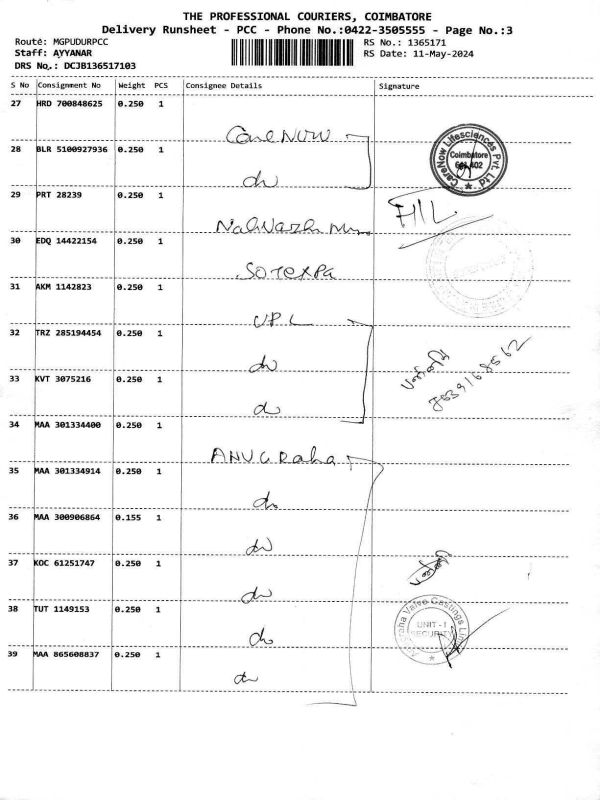 THE PROFESSIONAL COURIERS, COIMBATORE
Delivery Runsheet - PCC - Phone No.:0422-3505555 - Page No.:3
Route: MGPUDURPCC RS No.: 1365171
Staff: AYYANAR RS Date: 11-May-2024
DRS No.: DCJB136517103
S No Consignment No Weight PCS Consignee Details Signature
27 HRD 700848625 0.250 1 CareNow
CareNow Lifesciences Pvt. Ltd
Coimbatore
641 402
28 BLR 5100927936 0.250 1 do
29 PRT 28239 0.250 1
30 EDQ 14422154 0.250 1 SOTEXPA
31 AKM 1142823 0.250 1 UPL
32 TRZ 285194454 0.250 1 do
33 KVT 3075216 0.250 1 do
34 MAA 301334400 0.250 1 ANUGRaha
35 MAA 301334914 0.250 1 do
36 MAA 300906864 0.155 1 do
37 KOC 61251747 0.250 1 do
38 TUT 1149153 0.250 1 do
Anugraha Valve Castings
UNIT - I
SECURITY
39 MAA 865608837 0.250 1 do